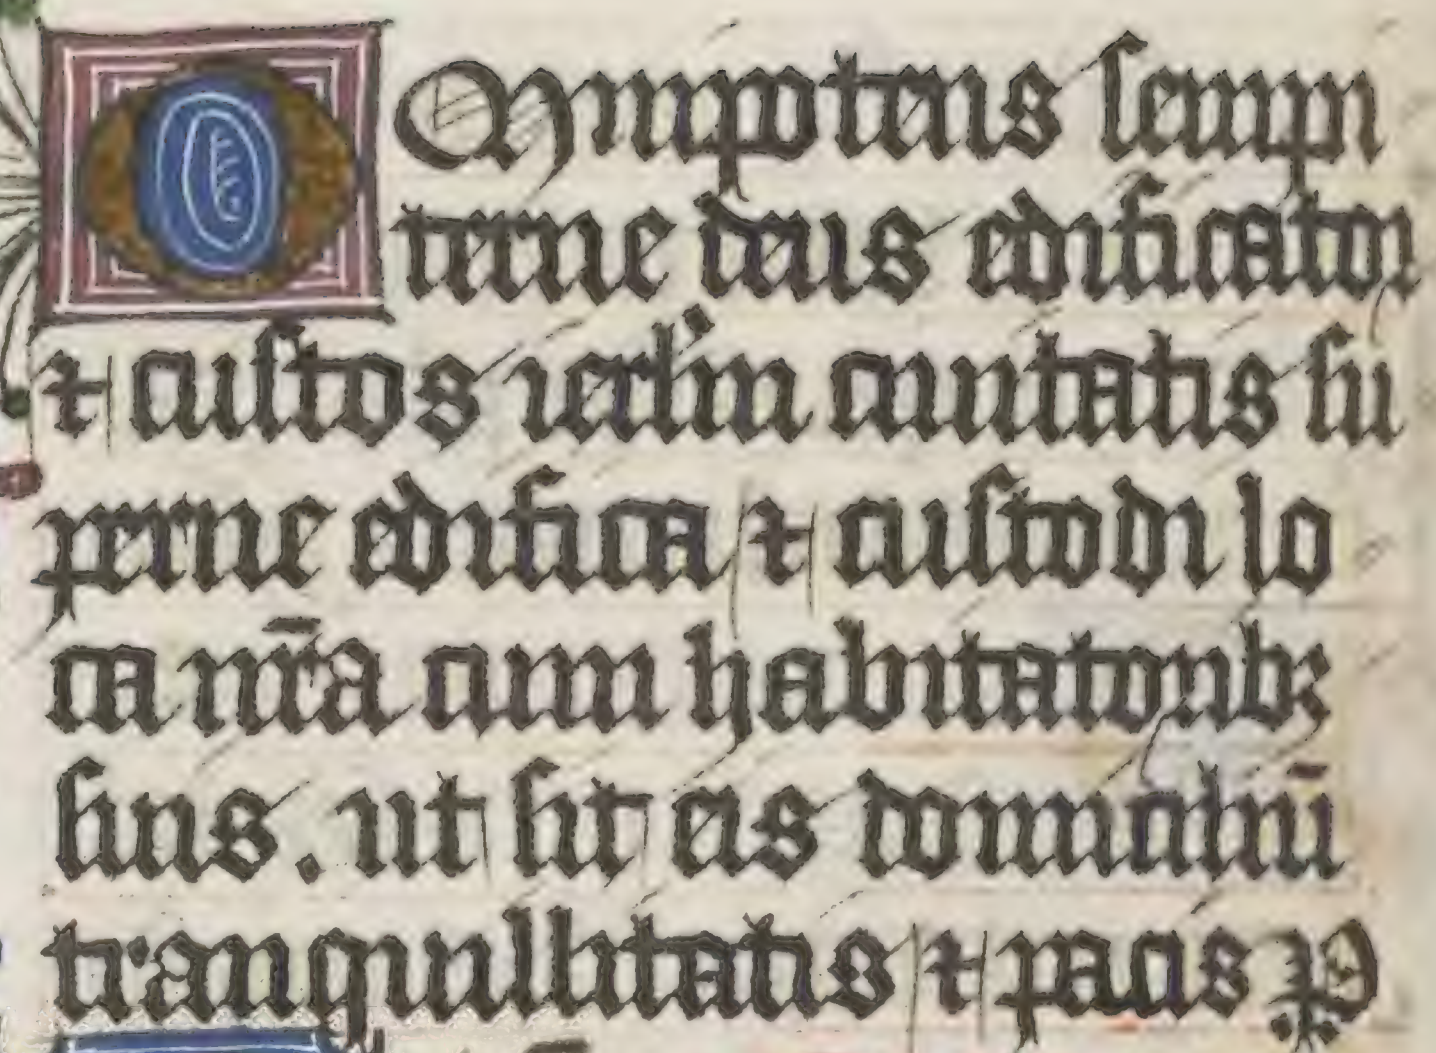 Omnipotens sempi
terne deus edificator
⁊ custos ierl'm ciuitatis su
perne edifica ⁊ custodi lo
ca nr̄a cum habitatoribꝫ
suis. ut sit eis domiciliū
tranquillitatis ⁊ pacis P